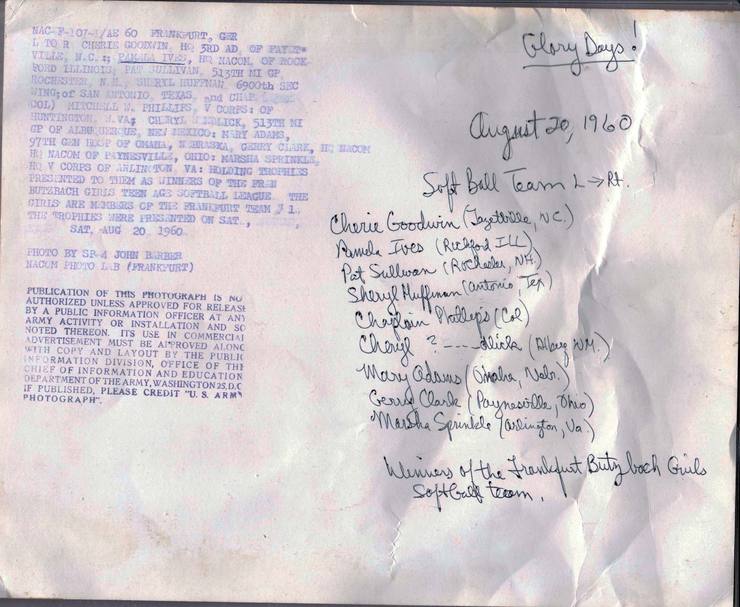 NAC-F-107-1/AE 60 FRANKFURT, GER
L TO R CHERIE GOODWIN, HQ 3RD AD, OF FAYET-
VILLE, N.C.; PAMALA IVES, HQ NACOM, OF ROCK-
FORD ILLINOIS; PAT SULLIVAN, 513TH MI GP,
ROCHESTER, N.H., SHERYL HUFFMAN, 6900th SEC
WING; of SAN ANTONIO, TEXAS, and CHAP
COL) MITCHELL W. PHILLIPS, V CORPS: OF
HUNTINGTON, W.VA; CHERYL 513TH MI
GP OF ALBUQUERQUE, NEW MEXICO: MARY ADAMS,
97TH GEN HOSP OF OMAHA, NEBRASKA, GERRY CLARK, HQ NACOM
HQ NACOM OF PAYNESVILLE, OHIO: MARSHA SPRINKLE,
HQ V CORPS OF ARLINGTON, VA: HOLDING TROPHIES
PRESENTED TO THEM AS WINNERS OF THE FRAN
BUTZBACH GIRLS TEEN AGE SOFTBALL LEAGUE. THE
GIRLS ARE MEMBERS OF THE FRANKFURT TEAM # 1.
THE TROPHIES WERE PRESENTED ON SAT.,
SAT, AUG 20 1960.
PHOTO BY SP-4 JOHN BARBER
NACOM PHOTO LAB (FRANKFURT)
PUBLICATION OF THIS PHOTOGRAPH IS NO
AUTHORIZED UNLESS APPROVED FOR RELEASE
BY A PUBLIC INFORMATION OFFICER AT ANY
ARMY ACTIVITY OR INSTALLATION AND SO
NOTED THEREON. ITS USE IN COMMERCIAL
ADVERTISEMENT MUST BE APPROVED ALONG
WITH COPY AND LAYOUT BY THE PUBLIC
INFORMATION DIVISION, OFFICE OF THE
CHIEF OF INFORMATION AND EDUCATION
DEPARTMENT OF THE ARMY, WASHINGTON 25, D.C
IF PUBLISHED, PLEASE CREDIT "U. S. ARMY
PHOTOGRAPH".
Glory Days!
August 20, 1960
Soft Ball Team L → Rt.
Cherie Goodwin (Fayetteville, N.C.)
Pamela Ives (Rickford ILL)
Pat Sullivan (Rochester, NH)
Sheryl Huffman (Antonio Tex)
Chaplain Phillips (Col)
Cheryl ? ----dlick (Albuq N.M.)
Mary Adams (Omaha, Nebr.)
Gerry Clark (Paynesville, Ohio)
Marsha Sprinkle (Arlington, Va)
Winners of the Frankfurt Butzbach Girls
Softball team.